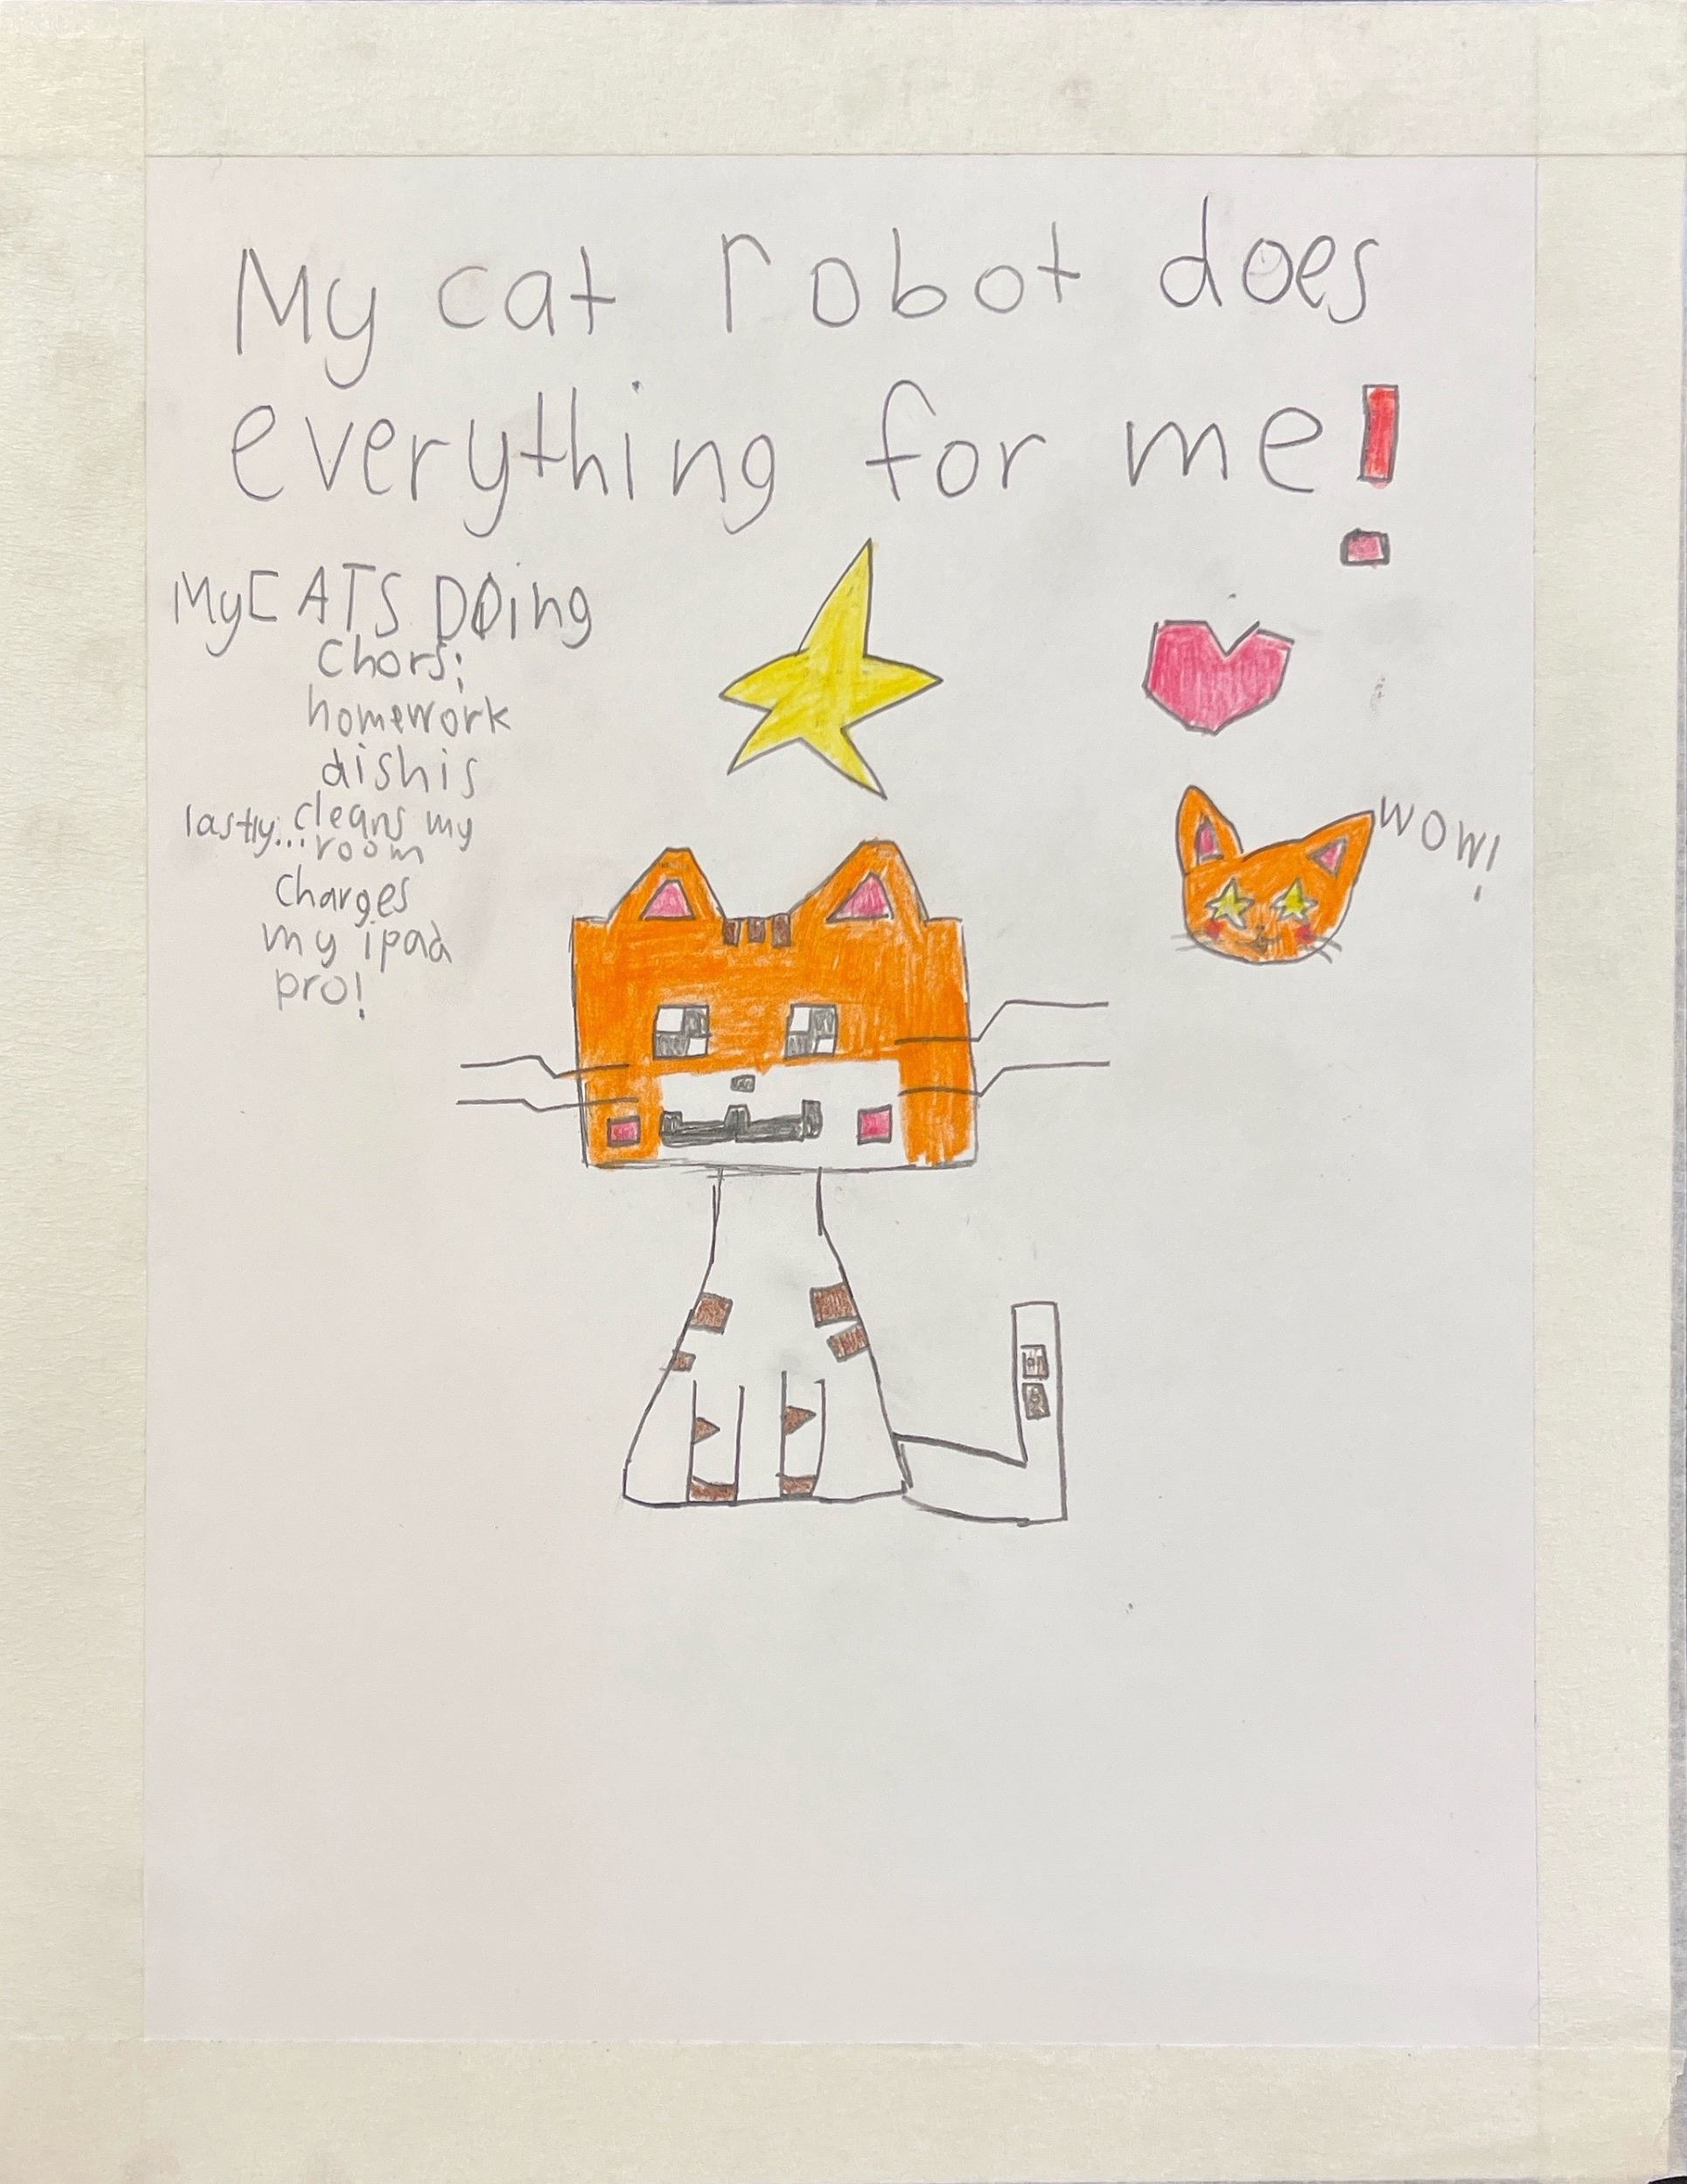 My cat robot does
everything for me!
MyCATS DOing
Chors:
homework
dishis
lastly... cleans my
room
Charges
my ipad
pro!
WOW!